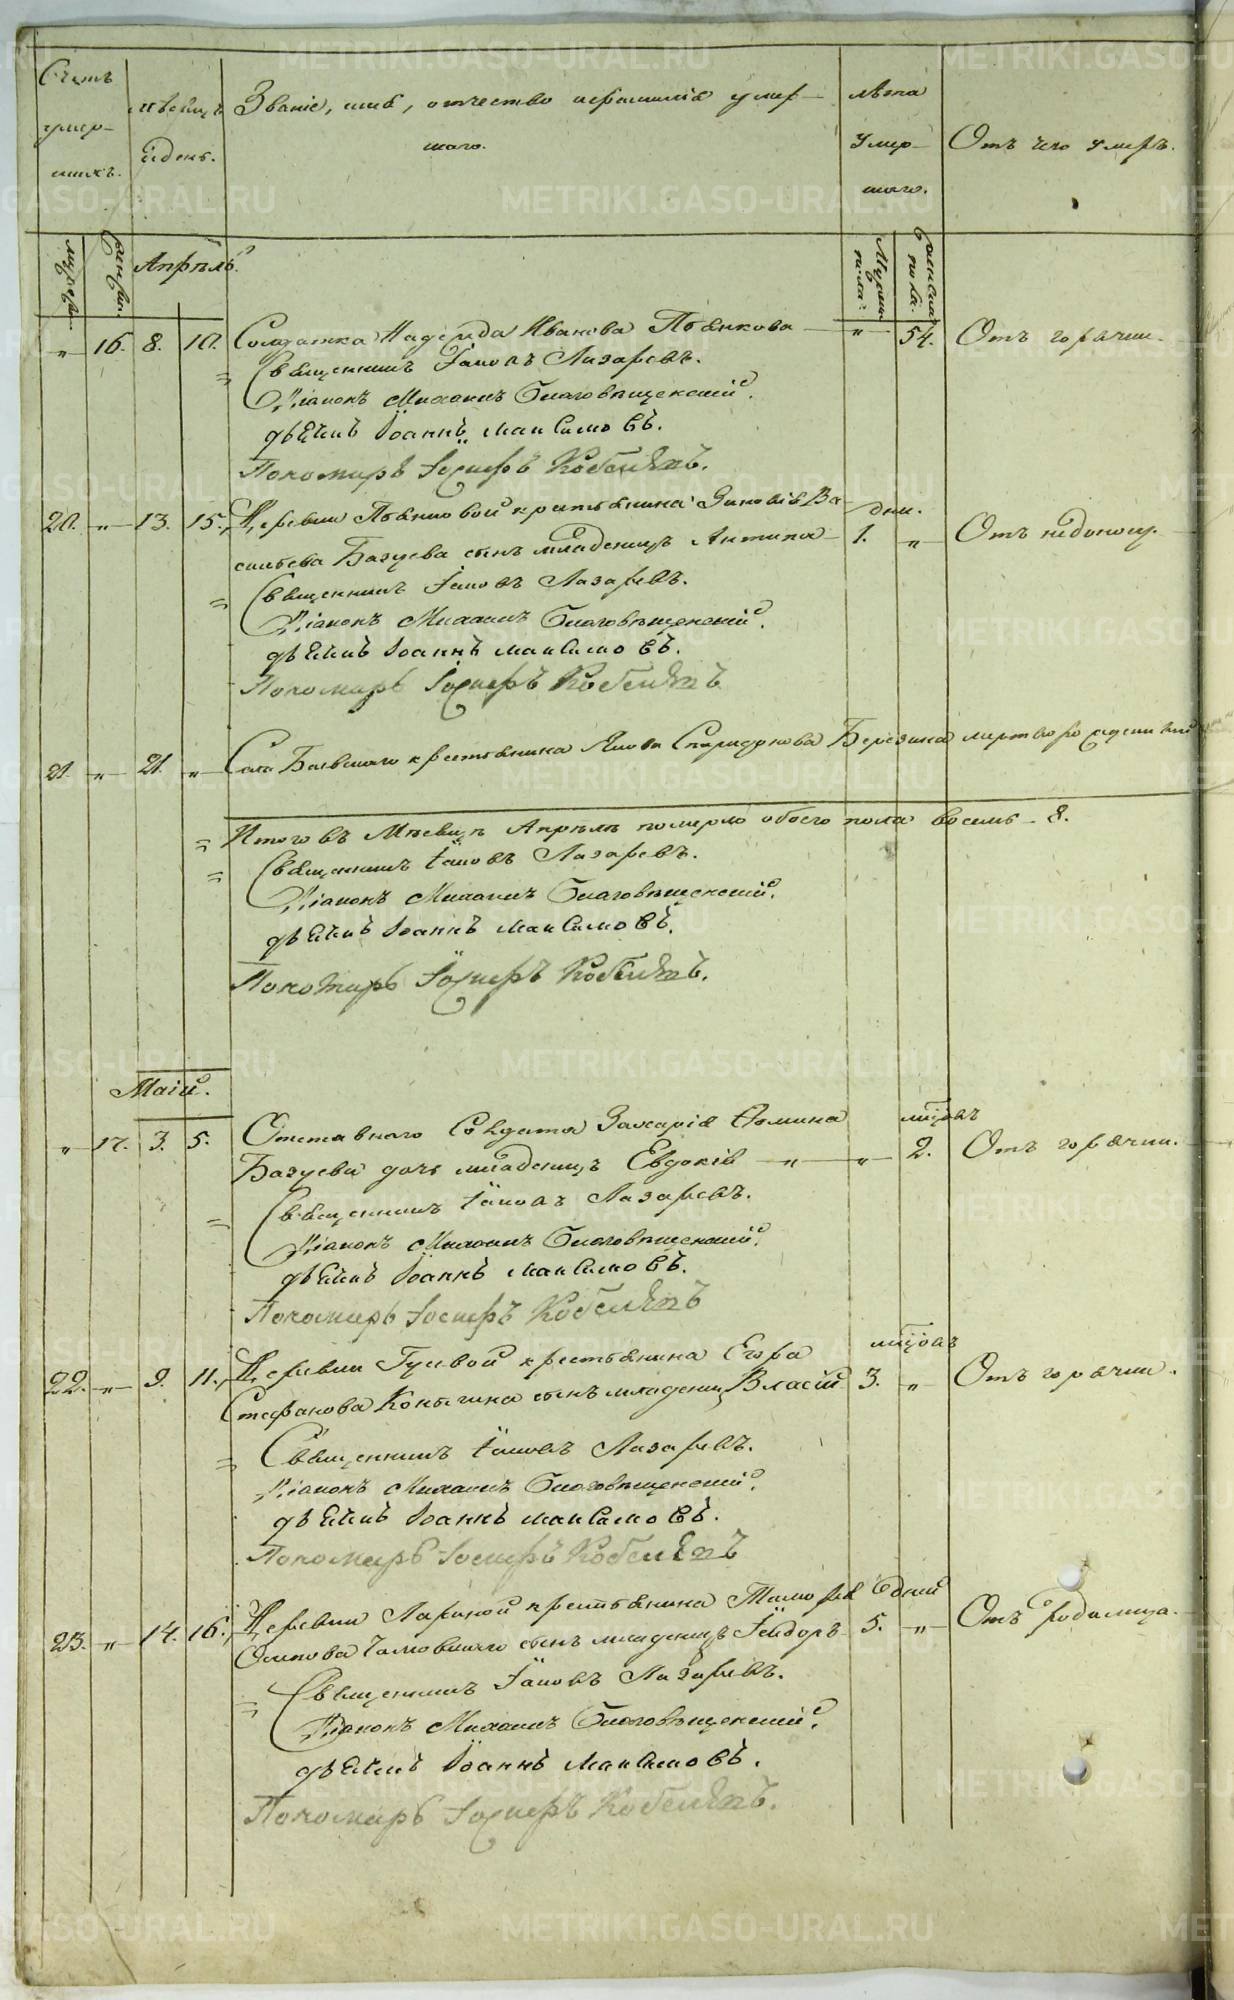 Счетъ умер-
шихъ.
Мѣсяцъ
и день.
Званіе, имя, отчество и фамилія умер-
шаго.
Лѣта
умер-
шаго.
Отъ чего умеръ.
Апрѣль.
Мужеска
пола.
Женска
пола.
„ 16. 8. 10. Солдатка Надежда Иванова Пѣнкова „ 54. Отъ горячки.
Священникъ Іаковъ Лазаревъ.
Діаконъ Михаилъ Благовѣщенскій.
дьячикъ Іоаннъ Максимовъ.
Пономарь Іосифъ Кобелевъ.
20. „ 13. 15. Деревни крестьянина Зиновія Ва- дни.
сильева Базуева сынъ младенецъ Антипа 1. „ Отъ недоносу.
Священникъ Іаковъ Лазаревъ.
Діаконъ Михаилъ Благовѣщенскій.
дьячикъ Іоаннъ Максимовъ.
Пономарь Іосифъ Кобелевъ
21. „ 21. „ Села крестьянина Якова Спиридонова Березина мертворожденный
Итого въ Мѣсяцѣ Апрѣлѣ померло обоего пола восемь 8.
Священникъ Іаковъ Лазаревъ.
Діаконъ Михаилъ Благовѣщенскій.
дьячикъ Іоаннъ Максимовъ.
Пономарь Іосифъ Кобелевъ.
Маій.
„ 17. 3. 5. Отставнаго Солдата Захарія Фомина мѣсяцъ
Базуева дочь младенецъ Евдокія „ „ 2. Отъ горячки.
Священникъ Іаковъ Лазаревъ.
Діаконъ Михаилъ Благовѣщенскій.
дьячикъ Іоаннъ Максимовъ.
Пономарь Іосифъ Кобелевъ
22. „ 9. 11. Деревни Гуевой крестьянина Егора мѣсяцъ
Стефанова сынъ младенецъ Власій 3. „ Отъ горячки.
Священникъ Іаковъ Лазаревъ.
Діаконъ Михаилъ Благовѣщенскій.
дьячикъ Іоаннъ Максимовъ.
Пономарь Іосифъ Кобелевъ
23. „ 14. 16. Деревни Лариной крестьянина дней
Осипова сынъ младенецъ Ѳеодоръ 5. „ Отъ родимца.
Священникъ Іаковъ Лазаревъ.
Діаконъ Михаилъ Благовѣщенскій.
дьячикъ Іоаннъ Максимовъ.
Пономарь Іосифъ Кобелевъ.
METRIKI.GASO-URAL.RU